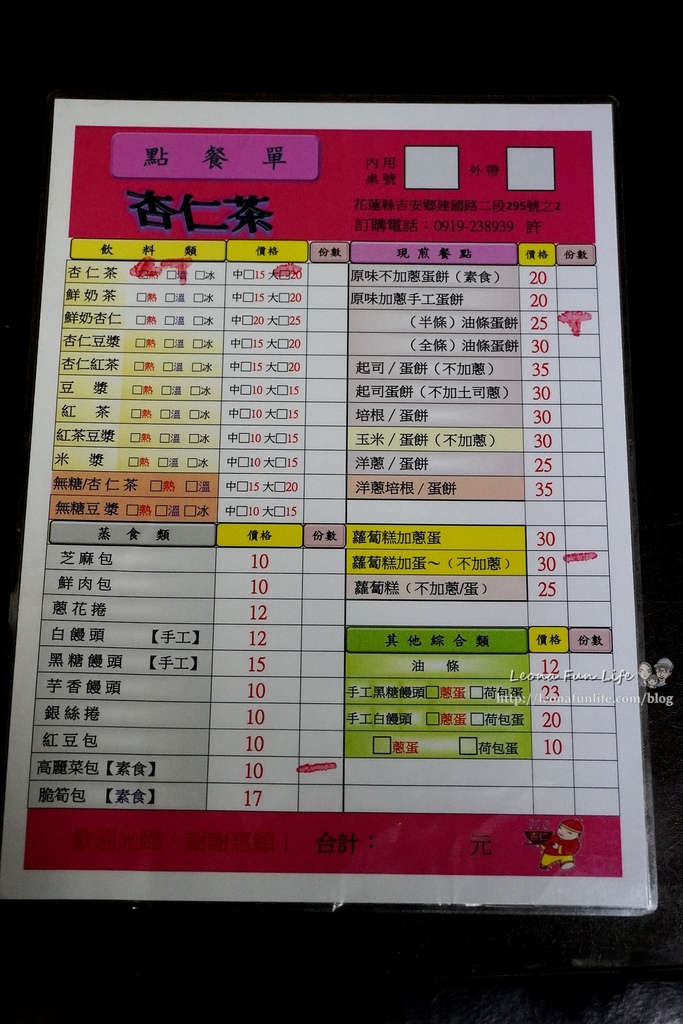 點餐單
內用
桌號
外帶
杏仁茶
花蓮縣吉安鄉建國路二段295號之2
訂購電話：0919-238939 許
飲料類 價格 份數
杏仁茶 □熱 □溫 □冰 中□15 大□20
鮮奶茶 □熱 □溫 □冰 中□15 大□20
鮮奶杏仁 □熱 □溫 □冰 中□20 大□25
杏仁豆漿 □熱 □溫 □冰 中□15 大□20
杏仁紅茶 □熱 □溫 □冰 中□15 大□20
豆漿 □熱 □溫 □冰 中□10 大□15
紅茶 □熱 □溫 □冰 中□10 大□15
紅茶豆漿 □熱 □溫 □冰 中□10 大□15
米漿 □熱 □溫 □冰 中□10 大□15
無糖/杏仁茶 □熱 □溫 中□15 大□20
無糖豆漿 □熱 □溫 □冰 中□10 大□15
蒸食類 價格 份數
芝麻包 10
鮮肉包 10
蔥花捲 12
白饅頭 【手工】 12
黑糖饅頭 【手工】 15
芋香饅頭 10
銀絲捲 10
紅豆包 10
高麗菜包【素食】 10
脆筍包 【素食】 17
現煎餐點 價格 份數
原味不加蔥蛋餅（素食） 20
原味加蔥手工蛋餅 20
（半條）油條蛋餅 25
（全條）油條蛋餅 30
起司/蛋餅（不加蔥） 35
起司蛋餅（不加土司蔥） 30
培根/蛋餅 30
玉米/蛋餅（不加蔥） 30
洋蔥/蛋餅 25
洋蔥培根/蛋餅 35
蘿蔔糕加蔥蛋 30
蘿蔔糕加蛋～（不加蔥） 30
蘿蔔糕（不加蔥/蛋） 25
其他綜合類 價格 份數
油條 12
手工黑糖饅頭□蔥蛋□荷包蛋 23
手工白饅頭 □蔥蛋□荷包蛋 20
□蔥蛋 □荷包蛋 10
歡迎光臨，謝謝惠顧！ 合計： 元
杏仁
Leona Fun Life
http://leonafunlife.com/blog